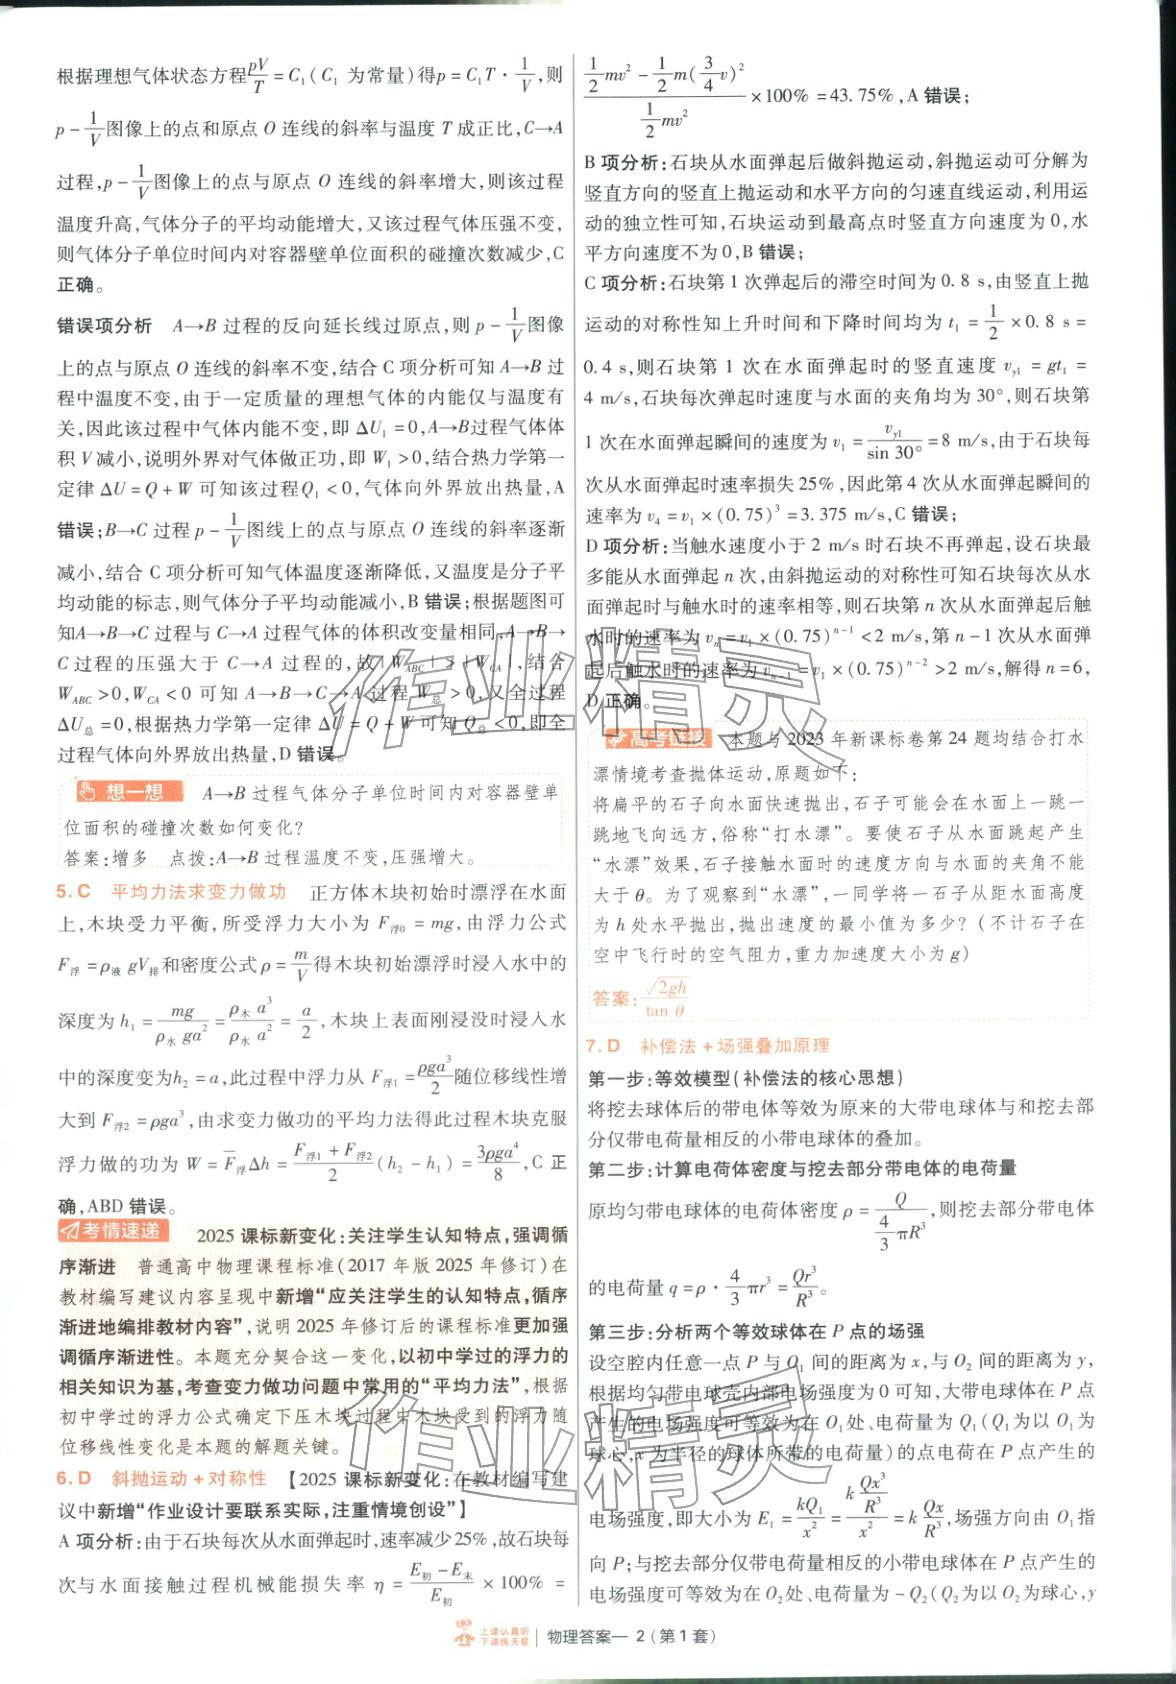 根据理想气体状态方程pV/T=C₁(C₁ 为常量)得p=C₁T·1/V,则
p-1/V图像上的点和原点 O 连线的斜率与温度 T 成正比,C→A
过程,p-1/V图像上的点与原点 O 连线的斜率增大,则该过程
温度升高,气体分子的平均动能增大,又该过程气体压强不变,
则气体分子单位时间内对容器壁单位面积的碰撞次数减少,C
正确。
错误项分析 A→B 过程的反向延长线过原点,则 p-1/V图像
上的点与原点 O 连线的斜率不变,结合 C 项分析可知 A→B 过
程中温度不变,由于一定质量的理想气体的内能仅与温度有
关,因此该过程中气体内能不变,即 ΔU₁=0,A→B过程气体体
积 V 减小,说明外界对气体做正功,即 W₁>0,结合热力学第一
定律 ΔU=Q+W 可知该过程Q₁<0,气体向外界放出热量,A
错误;B→C 过程 p-1/V图线上的点与原点 O 连线的斜率逐渐
减小,结合 C 项分析可知气体温度逐渐降低,又温度是分子平
均动能的标志,则气体分子平均动能减小,B 错误;根据题图可
知A→B→C 过程与 C→A 过程气体的体积改变量相同,A→B→
C 过程的压强大于 C→A 过程的,故|W_ABC|>|W_CA|,结合
W_ABC>0,W_CA<0 可知 A→B→C→A 过程 W总>0,又全过程
ΔU总=0,根据热力学第一定律 ΔU=Q+W 可知 Q总<0,即全
过程气体向外界放出热量,D 错误。
想一想 A→B 过程气体分子单位时间内对容器壁单
位面积的碰撞次数如何变化?
答案:增多 点拨:A→B 过程温度不变,压强增大。
5. C 平均力法求变力做功 正方体木块初始时漂浮在水面
上,木块受力平衡,所受浮力大小为 F浮0=mg,由浮力公式
F浮=ρ液gV排和密度公式ρ=m/V得木块初始漂浮时浸入水中的
深度为 h₁=mg/(ρ水ga²)=ρ木a³/(ρ水a²)=a/2,木块上表面刚浸没时浸入水
中的深度变为h₂=a,此过程中浮力从 F浮1=ρga³/2随位移线性增
大到 F浮2=ρga³,由求变力做功的平均力法得此过程木块克服
浮力做的功为 W=F̄浮Δh=(F浮1+F浮2)/2(h₂-h₁)=3ρga⁴/8,C 正
确,ABD 错误。
考情速递 2025 课标新变化:关注学生认知特点,强调循
序渐进 普通高中物理课程标准(2017 年版 2025 年修订)在
教材编写建议内容呈现中新增“应关注学生的认知特点,循序
渐进地编排教材内容”,说明 2025 年修订后的课程标准更加强
调循序渐进性。本题充分契合这一变化,以初中学过的浮力的
相关知识为基,考查变力做功问题中常用的“平均力法”,根据
初中学过的浮力公式确定下压木块过程中木块受到的浮力随
位移线性变化是本题的解题关键。
6. D 斜抛运动+对称性 【2025 课标新变化:在教材编写建
议中新增“作业设计要联系实际,注重情境创设”】
A 项分析:由于石块每次从水面弹起时,速率减少25%,故石块每
次与水面接触过程机械能损失率 η=(E初-E末)/E初×100%=
(1/2mv²-1/2m(3/4v)²)/(1/2mv²)×100%=43.75%,A 错误;
B 项分析:石块从水面弹起后做斜抛运动,斜抛运动可分解为
竖直方向的竖直上抛运动和水平方向的匀速直线运动,利用运
动的独立性可知,石块运动到最高点时竖直方向速度为 0,水
平方向速度不为 0,B 错误;
C 项分析:石块第 1 次弹起后的滞空时间为 0.8 s,由竖直上抛
运动的对称性知上升时间和下降时间均为 t₁=1/2×0.8 s=
0.4 s,则石块第 1 次在水面弹起时的竖直速度 v_y1=gt₁=
4 m/s,石块每次弹起时速度与水面的夹角均为 30°,则石块第
1 次在水面弹起瞬间的速度为 v₁=v_y1/sin 30°=8 m/s,由于石块每
次从水面弹起时速率损失25%,因此第 4 次从水面弹起瞬间的
速率为 v₄=v₁×(0.75)³=3.375 m/s,C 错误;
D 项分析:当触水速度小于 2 m/s 时石块不再弹起,设石块最
多能从水面弹起 n 次,由斜抛运动的对称性可知石块每次从水
面弹起时与触水时的速率相等,则石块第 n 次从水面弹起后触
水时的速率为 vₙ=v₁×(0.75)ⁿ⁻¹<2 m/s,第 n-1 次从水面弹
起后触水时的速率为 vₙ₋₁=v₁×(0.75)ⁿ⁻²>2 m/s,解得 n=6,
D 正确。
高考链接 本题与 2023 年新课标卷第 24 题均结合打水
漂情境考查抛体运动,原题如下:
将扁平的石子向水面快速抛出,石子可能会在水面上一跳一
跳地飞向远方,俗称“打水漂”。要使石子从水面跳起产生
“水漂”效果,石子接触水面时的速度方向与水面的夹角不能
大于 θ。为了观察到“水漂”,一同学将一石子从距水面高度
为 h 处水平抛出,抛出速度的最小值为多少?(不计石子在
空中飞行时的空气阻力,重力加速度大小为 g)
答案:√(2gh)/tan θ
7. D 补偿法+场强叠加原理
第一步:等效模型(补偿法的核心思想)
将挖去球体后的带电体等效为原来的大带电球体与和挖去部
分仅带电荷量相反的小带电球体的叠加。
第二步:计算电荷体密度与挖去部分带电体的电荷量
原均匀带电球体的电荷体密度 ρ=Q/(4/3πR³),则挖去部分带电体
的电荷量 q=ρ·4/3πr³=Qr³/R³。
第三步:分析两个等效球体在 P 点的场强
设空腔内任意一点 P 与 O₁ 间的距离为 x,与 O₂ 间的距离为 y,
根据均匀带电球壳内部电场强度为 0 可知,大带电球体在 P 点
产生的电场强度可等效为在 O₁处、电荷量为 Q₁(Q₁为以 O₁为
球心,x 为半径的球体所带的电荷量)的点电荷在 P 点产生的
电场强度,即大小为 E₁=kQ₁/x²=k(Qx³/R³)/x²=kQx/R³,场强方向由 O₁指
向 P;与挖去部分仅带电荷量相反的小带电球体在 P 点产生的
电场强度可等效为在 O₂处、电荷量为-Q₂(Q₂为以 O₂为球心,y
上课认真听
下课练天星
物理答案—2(第 1 套)
作业精灵
作业精灵